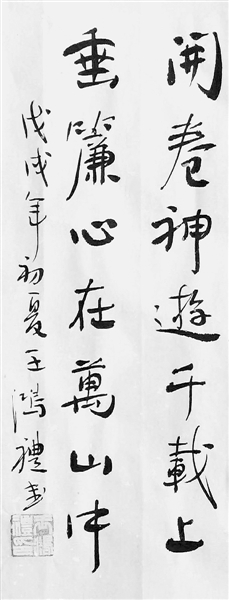 開卷神遊千載上
垂簾心在萬山中
戊戌年初夏王鴻禮書